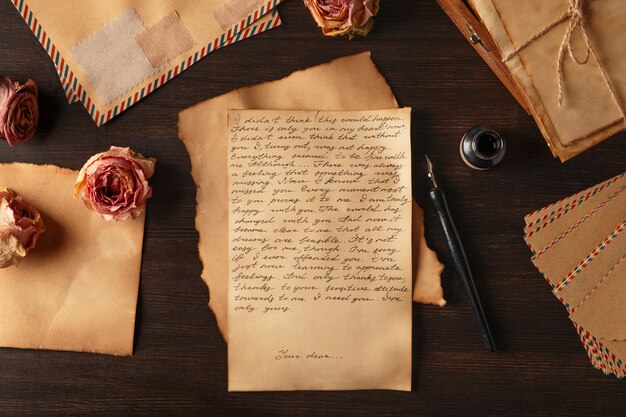 I didn't think this would happen.
There is only you in my heart now.
I didn't even think that without
you I, turns out, was not happy.
Everything seemed to be fine with
me. Although... There was always
a feeling that something was
missing. Now I know that I
missed you. Every moment next
to you proves it to me. I am truly
happy with you. The world has
changed with you. And now it
became clear to me that all my
dreams are feasible. It's not
easy for me, though. I'm sorry
if I ever offended you. I'm
just now learning to appreciate
feelings. And only thanks to you,
thanks to your sensitive attitude
towards to me. I need you. I'm
only yours
Your dear...